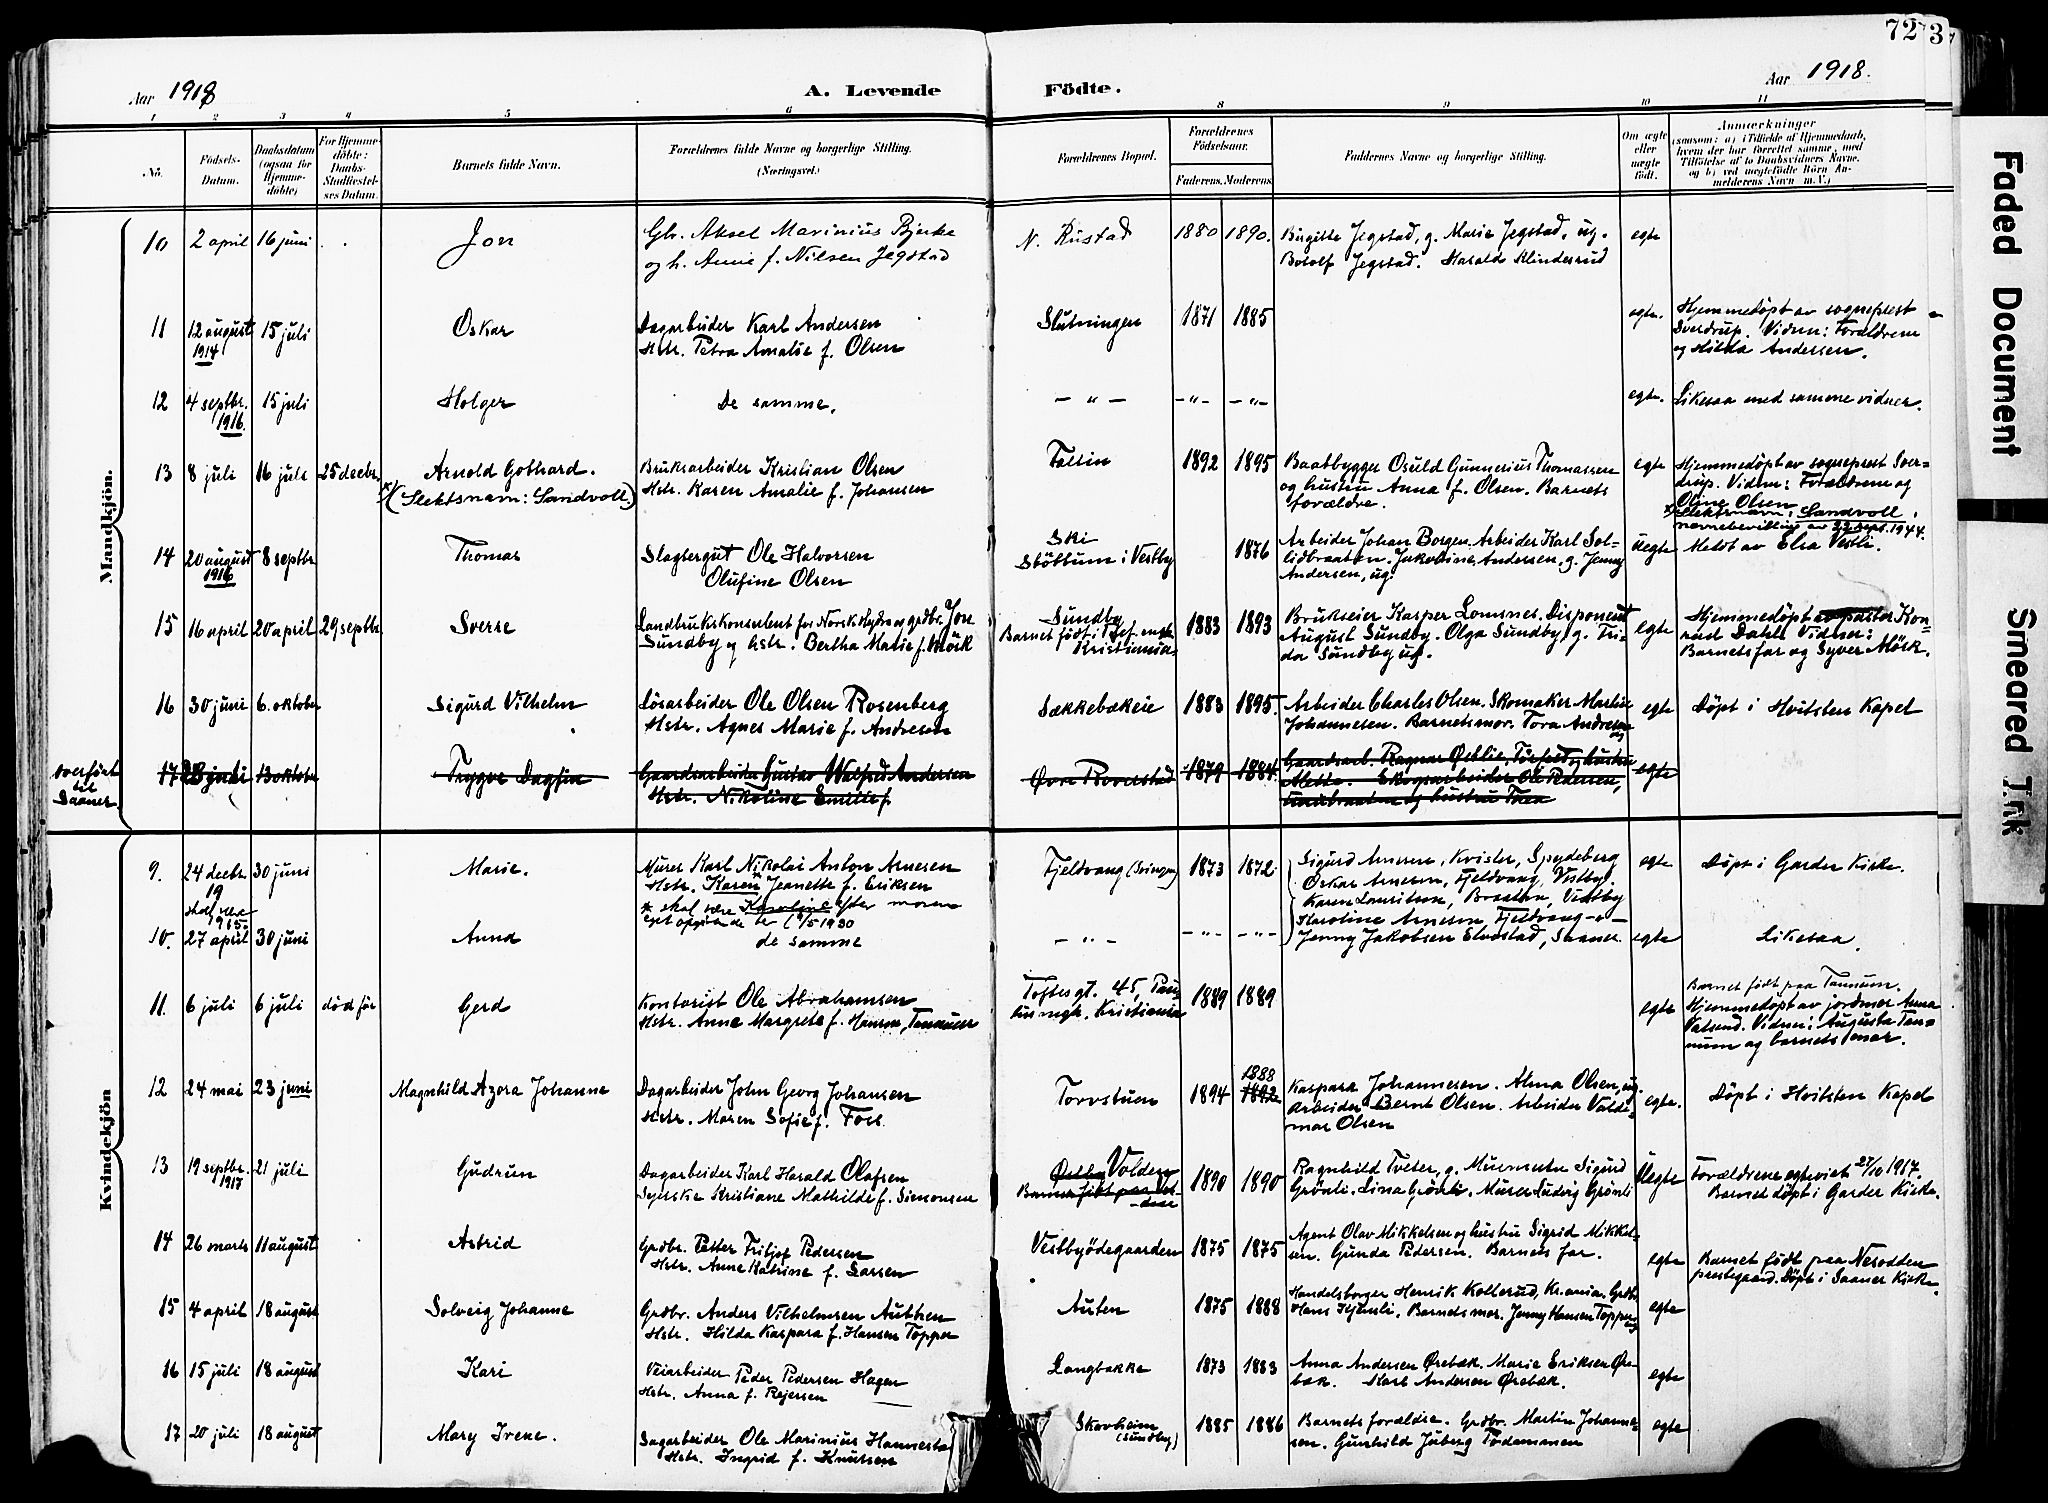 72 3
Aar 1918
A. Levende Födte.
Aar 1918.
1 2 3 4 5 6 8 9 10 11
No.
Födsels-Datum.
Daabsdatum (ogsaa for Hjemme-döbte)
For Hjemme-döbte: Daabs-Stadfæstel-ses Datum.
Barnets fulde Navn.
Forældrenes fulde Navne og borgerlige Stilling.
(Næringsvei.)
Forældrenes Bopæl.
Forældrenes Födselsaar.
Faderens. Moderens.
Faddernes Navne og borgerlige Stilling.
Om ægte eller uægte födt.
Anmærkninger
(saasom: a) i Tilfælde af Hjemmedaab, hvem der har forrettet samme, med Tilföielse af to Daabsvidners Navne, og b) ved uægtefödte Börn An-melderens Navn m.V.)
Mandkjön.
10 2 april 16 juni Jon Gb. Aksel Marinius Bjerke
og h. Anne f. Nilsen Jegstad
N. Rustad 1880 1890. Birgitte Jegstad, g. Marie Jegstad, ug.
Botolf Jegstad. Harald Klinderud
egte
11 12 august 1914 15 juli Oskar Dagarbeider Karl Andersen
Hstr. Petra Amalie f. Olsen
Slutningen 1871 1885 egte. Hjemmedöpt av sogneprest
Sverdrup. Vidner: Forældrene
og Hilda Andersen.
12 4 septbr. 1916. 15 juli Holger De samme. — " — — " — — " — egte. Likesaa med samme vidner.
13 8 juli 16 juli 25 decbr. Arnold Gothard.
(Slektsnavn: Sandvoll.)
Bruksarbeider Kristian Olsen
Hstr. Karen Amalie f. Johansen
Follin 1892 1895 Baatbygger Osuld Gunnerius Thomassen
og hustru Anna f. Olsen. Barnets
forældre.
egte Hjemmedöpt av sogneprest Sver=
drup. Vidner: Forældrene og
Oline Olsen
Slektsnavn: Sandvoll,
navnebevilling av 22 sept. 1944.
14 20 august 1916 8 septbr Thomas Slagtergut Ole Halvorsen
Olufine Olsen
Ski
Stöttum i Vestby
1876 Arbeider Johan Borgen. Arbeider Karl Sol=
lidbraaten. Jakobine Andersen, g. Jenny
Andersen, ug.
uegte Meldt av Elsa Vestli.
15 16 april 20 april 29 septbr. Sverre Landbrukskonsulent for Norsk Hydro og grdbr. Jon
Sundby og hstr. Bertha Marie f. Mörk
Sundby
Barnet födt i
Kristiania
1883 1893 Brukseier Kasper Lomsnes. Disponent
August Sundby. Olga Sundby, g. Fri=
da Sundby ug.
egte Hjemmedöpt av pastor Kon=
rad Dahl. Vidner:
Barnets far og Syver Mörk.
16 30 juni 6. oktober Sigurd Vilhelm Lösarbeider Ole Olsen Rosenberg
Hstr. Agnes Marie f. Andresen
Sækkebækeie 1883 1895. Arbeider Charles Olsen. Skomaker Martin
Johannesen. Barnets mor. Tora Andresen
ug
egte Döpt i Hvitsten Kapel
overfört til Saaner
17 28 juli 13 oktober Trygve Dagfin Gaardsarbeider Gustav Walfred Andersen
Hstr. Nikoline Emilie f.
Övre Roverstad 1879 1884. Gaardsarb. Ragnar Östlie, og hustru
Alette. Skogsarbeider Ole Pedersen,
og hustru Thea
egte
Kvindekjön
9. 24 decbr. 19 skal være 1915. 30 juni Marie. Murer Karl Nikolai Anton Arnesen
Hstr. Karen Jeanette f. Eriksen
* skal være Karoline efter moren
eget opgivende ber. 9/5 1930
Fjeldvang 1873 1872. Sigurd Arnesen, Kvister, Spydeberg
Oskar Arnesen, Fjeldvang, Vestby.
Karen Lauritsen, Braaten, Vestby
Karoline Arnesen Fjeldvang —"—
Jenny Jakobsen Elvestad, Saaner.
egte Döpt i Garder Kirke.
10. 27 april 30 juni Anna de samme — " — — " — — " — egte Likesaa.
11. 6 juli 6 juli död för Gerd Kontorist Ole Abrahamsen
Hstr. Anne Margrete f. Hansen, Tannum
Toftesgt. 45, Pau=
lusmgh. Kristiania
1889 1889 egte Barnet födt paa Tannum.
Hjemmedöpt av jordmor Anna
Vatsend. Vidner: Augusta Tan=
num og barnets mor.
12 24 mai 23 juni Magnhild Azora Johanne Dagarbeider John Georg Johansen
Hstr. Maren Sofie f. Foss.
Torvstuen 1894 1888 1892 Kaspara Johannesen. Alma Olsen, ug.
Arbeider Bernt Olsen. Arbeider Valde=
mar Olsen
egte. Döpt i Hvitsten Kapel
13 19 septbr. 1917 21 juli Gudrun Dagarbeider Karl Harald Olafsen
Syerske Kristiane Mathilde f. Simonsen
Östby Volden
Barnet födt paa Vol=
den
1890 1890 Ragnhild Tveter, g. Murmester Sigurd
Grönli. Lina Grönli. Murer Ludvig Grönli
Uegte Forældrene egteviet 27/10 1917.
Barnet döpt i Garder Kirke.
14 26 marts 11 august Astrid Grdbr. Petter Fritjof Pedersen
Hstr. Anne Katrine f. Larsen
Vestbyödegaarden 1875 1875 Agent Olav Mikkelsen og hustru Sigrid Mikkel=
sen. Gunda Pedersen. Barnets far.
egte Barnet födt paa Nesodden
prestegaard. Döpt i Saaner Kirke.
15 4 april 18 august Solveig Johanne Grdbr. Anders Vilhelmsen Authen
Hstr. Hilda Kaspara f. Hansen Topper
Auten 1875 1888 Handelsborger Henrik Kollerud, Kr.ania. Grdbr.
Hans Hjemli. Barnets mor. Jenny Hansen Topper
ug
egte
16 15 juli 18 august Kari Veiarbeider Peder Pedersen Hagen
Hstr. Anna f. Rejersen
Langbakke 1873 1883 Anna Andersen Örebæk. Marie Eriksen Öre=
bæk. Karl Andersen Örebæk.
egte
17 20 juli 18 august Mary Irene. Dagarbeider Ole Marinius Hannestad
Hstr. Ingrid f. Knutsen
Skovheim
(Sundby)
1885 1886 Barnets forældre. Grdbr. Martin Johanne=
sen. Gunhild Juberg Tödemmen
egte
Faded Document
Smeared Ink